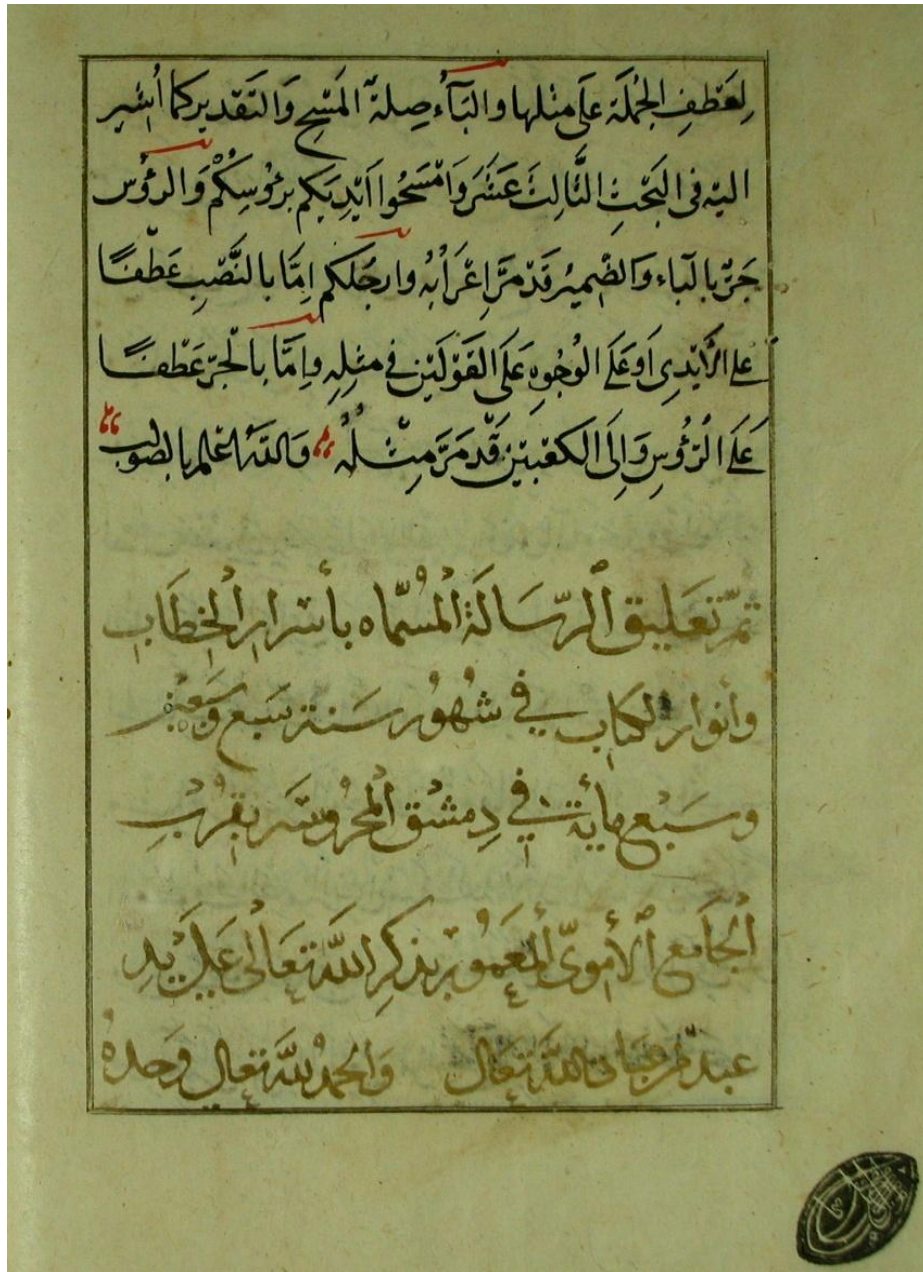 لِعَطْفِ الجُملَة عَلَى مثلها والبَآءُ صِلَة المَسْحِ وَالتَقديركما اُشير
اليْه فى البَحْثِ الثَّالِثَ عَشَرَ وَامْسَحُوا اَيْدِيَكم برءُوسِكُمْ وَالرءُوس
جَرّ بالبَاء وَالضّميرُ قَدْ مَرَّ اِعْرَابُهُ وارجُلكم اِمَّا بالنَّصْبِ عَطْفًا
عَلى الأَيْدِى اَوعَلَى الوُجُوهِ عَلَى القَوْلَيْن فى مثلِهِ وَاِمَّا بالْجَرّ عَطْفًا
عَلَى الرُّؤُسِ وَاِلَى الكعْبَيْن قَدْ مَرَّ مِثْلُهُ وَاللهُ اعْلم بالصّواب
تمّ تعَليق الرّسَالَة المُسْمّاه بأسْرار الخِطَابِ
وأنوار الكتَابِ في شُهُور سَنة سَبع وسَبعين
وسَبْع مايَة في دِمشْق المحْرُوسَة بقُرْبِ
الجَامع الأمَوىّ المعَمُور بذكرِ اللهَ تعَالى عَلى يَدِ
عبد اللهَ تعَالى وَالحمْدُ للهَ تعَالى وَحدَهُ